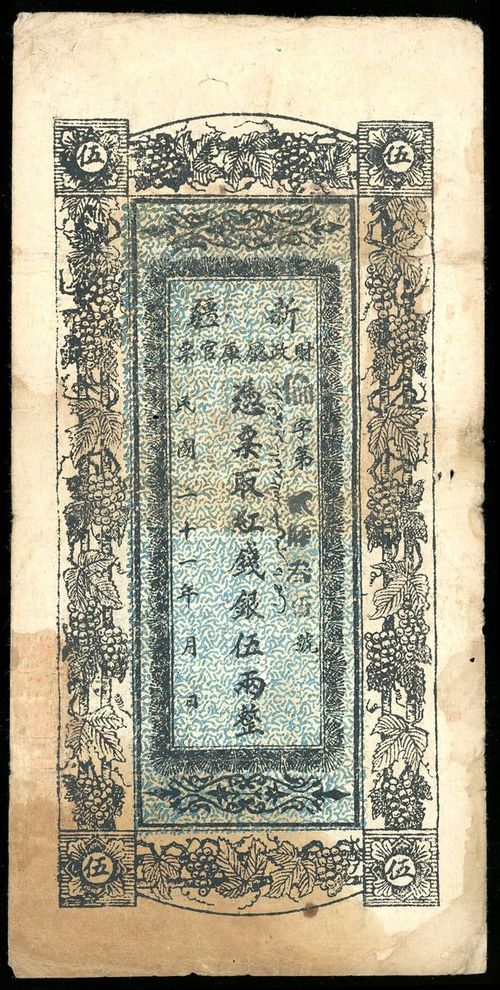 伍 伍
新疆
財政廳庫官票
字第 號
憑票取紅錢銀伍兩整
民國二十一年 月 日
伍 伍